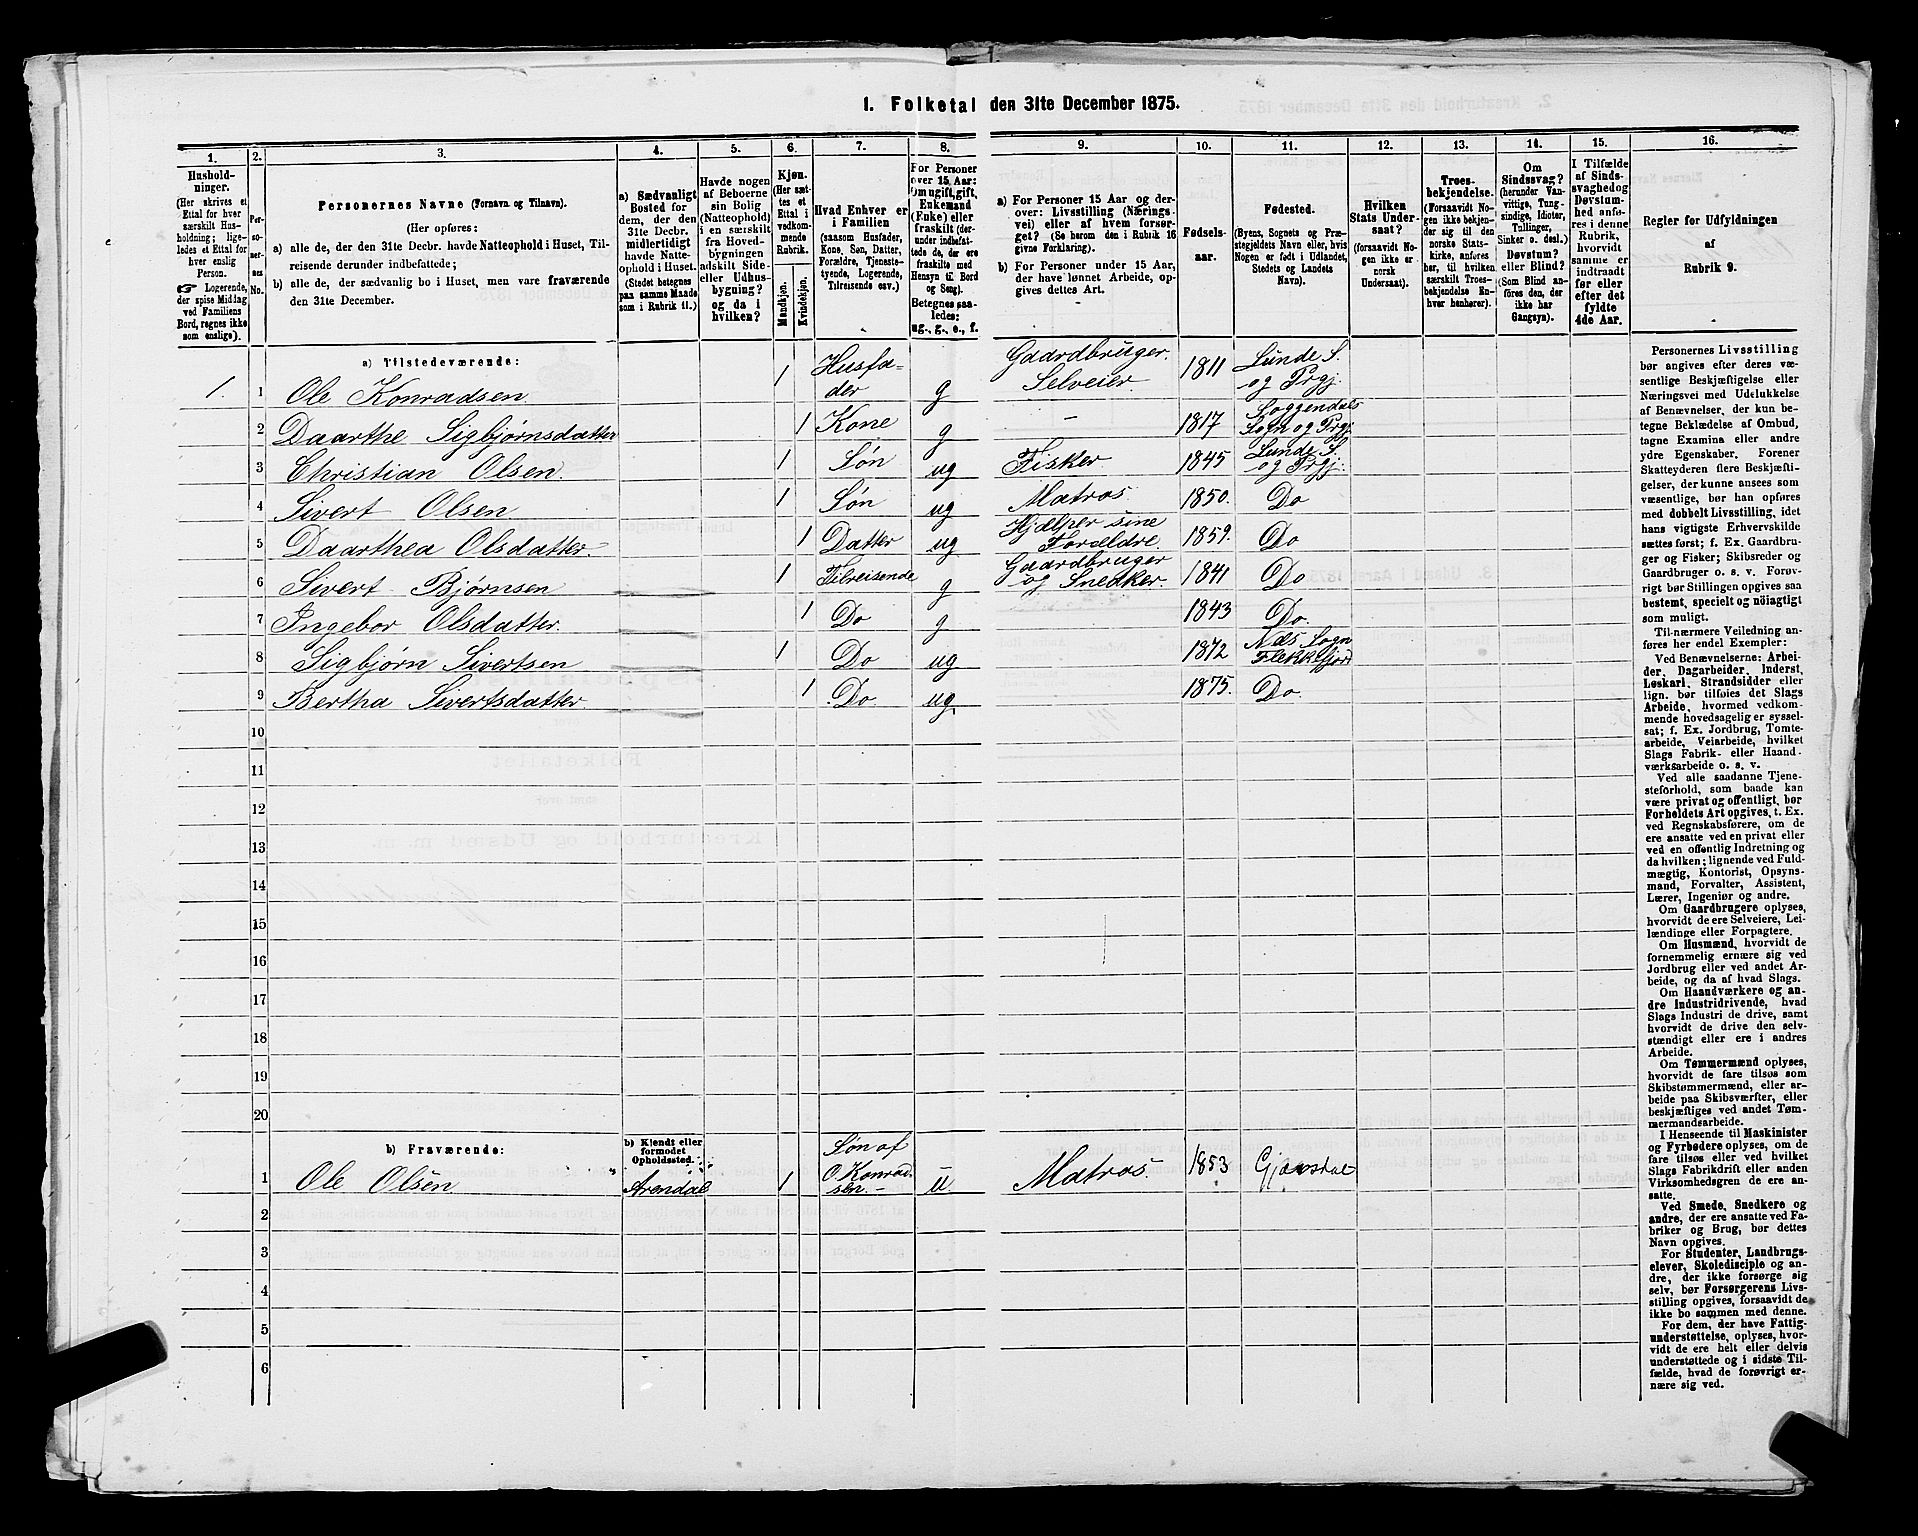 1. Folketal den 31te December 1875.
1. 2. 3. 4. 5. 6. 7. 8. 9. 10. 11. 12. 13. 14. 15. 16.
Hushold-
ninger.
(Her skrives et
Ettal for hver
særskilt Hus-
holdning; lige-
ledes et Ettal for
hver enslig
Person.
☞ Logerende,
der spise Middag
ved Familiens
Bord, regnes ikke
som enslige).
Per-
so-
ner-
nes
No.
Personernes Navne (Fornavn og Tilnavn).
(Her opføres:
a) alle de, der den 31te Decbr. havde Natteophold i Huset, Til-
reisende derunder indbefattede;
b) alle de, der sædvanlig bo i Huset, men vare fraværende
den 31te December.
a) Sædvanligt
Bosted for
dem, der den
31te Decbr.
midlertidigt
havde Natte-
ophold i Huset.
(Stedet betegnes
paa samme Maade
som i Rubrik 11.)
Havde nogen
af Beboerne
sin Bolig
(Natteophold)
i en særskilt
fra Hoved-
bygningen
adskilt Side-
eller Udhus-
bygning?
og da i
hvilken?
Kjøn.
(Her sæt-
tes et
Ettal i
vedkom-
mende
Rubrik.
Mandkjøn.
Kvindekjøn.
Hvad Enhver er
i Familien
(saasom Husfader,
Kone, Søn, Datter,
Forældre, Tjeneste-
tyende, Logerende,
Tilreisende osv.)
For Personer
over 15 Aar:
Om ugift, gift,
Enkemand
(Enke) eller
fraskilt (der-
under indbefat-
tede de, der ere
fraskilte med
Hensyn til Bord
og Seng).
Betegnes saa-
ledes:
ug., g., e., f.
a) For Personer 15 Aar og der-
over: Livsstilling (Nærings-
vei) eller af hvem forsør-
get? (Se herom den i Rubrik 16
givne Forklaring).
b) For Personer under 15 Aar,
der have lønnet Arbeide, op-
gives dettes Art.
Fødsels-
aar.
Fødested.
(Byens, Sognets og Præ-
stegjeldets Navn eller, hvis
Nogen er født i Udlandet,
Stedets og Landets
Navn).
Hvilken
Stats Under-
saat?
(forsaavidt No-
gen ikke er
norsk
Undersaat).
Troes-
bekjendelse.
(Forsaavidt No-
gen ikke bekjen-
der sig til den
norske Stats-
kirke, anføres
her, til hvilken
særskilt Troes-
bekjendelse En-
hver henhører).
Om
Sindssvag?
(herunder Van-
vittige, Tung-
sindige, Idioter,
Tullinger,
Sinker o. desl.)
Døvstum?
eller Blind?
(Som Blind an-
føres den, der
ikke har
Gangsyn).
I Tilfælde
af Sinds-
svaghed og
Døvstum-
hed anfø-
res i denne
Rubrik,
hvorvidt
samme er
indtraadt
før eller
efter det
fyldte
4de Aar.
Regler for Udfyldningen
af
Rubrik 9.
a) Tilstedeværende:
1. 1 Ole Konradsen 1 Husfa-
der g Gaardbruger.
Selveier 1811 Lunde S.
og Prgj.
2 Daarthe Sigbjørnsdatter 1 Kone g – 1817 Soggendals
Sogn og Prgj.
3 Christian Olsen. 1 Søn ug Fisker. 1845 Lunde S.
og Prgj.
4 Sivert Olsen 1 Søn ug Matros. 1850. Do
5 Daarthea Olsdatter. 1 Datter ug Hjælper sine
Forældre. 1859. Do
6 Sivert Bjørnsen 1 Tilreisende g Gaardbruger
og Snedker. 1841 Do
7 Ingebor Olsdatter. 1 Do g 1843 Do.
8 Sigbjørn Sivertsen 1 Do ug 1872 Næs Sogn
Flekkefjord
9 Bertha Sivertsdatter. 1 Do ug. 1875. Do.
10
11
12
13
14
15
16
17
18
19
20
b) Fraværende:
b) Kjendt eller
formodet
Opholdssted.
1 Ole Olsen Arendal 1 Søn af
O. Konrad-
sen. – u Matros. 1853
2
3
4
5
6
Personernes Livsstilling
bør angives efter deres væ-
sentlige Beskjæftigelse eller
Næringsvei med Udelukkelse
af Benævnelser, der kun be-
tegne Beklædelse af Ombud,
tagne Examina eller andre
ydre Egenskaber. Forener
Skatteyderen flere Beskjæfti-
gelser, der kunne ansees som
væsentlige, bør han opføres
med dobbelt Livsstilling, idet
hans vigtigste Erhvervskilde
sættes først; f. Ex. Gaardbru-
ger og Fisker; Skibsreder og
Gaardbruger o. s. v. Forøv-
rigt bør Stillingen opgives saa
bestemt, specielt og nøiagtigt
som muligt.
Til nærmere Veiledning an-
føres her endel Exempler:
Ved Benævnelserne: Arbei-
der, Dagarbeider, Inderst,
Løskarl, Strandsidder eller
lign. bør tilføies det Slags
Arbeide, hvormed vedkom-
mende hovedsagelig er syssel-
sat; f. Ex. Jordbrug, Tomte-
arbeide, Veiarbeide, hvilket
Slags Fabrik- eller Haand-
værksarbeide o. s. v.
Ved alle saadanne Tjene-
steforhold, som baade kan
være privat og offentligt, bør
Forholdets Art opgives, t. Ex.
ved Regnskabsførere, om de
ere ansatte ved en privat eller
ved en offentlig Indretning og
da hvilken; lignende ved Fuld-
mægtig, Kontorist, Opsyns-
mand, Forvalter, Assistent,
Lærer, Ingeniør og andre.
Om Gaardbrugere oplyses,
hvorvidt de ere Selveiere, Lei-
lændinge eller Forpagtere.
Om Husmænd, hvorvidt de
fornemmelig ernære sig ved
Jordbrug eller ved andet Ar-
beide, og da af hvad Slags.
Om Haandværkere og an-
dre Industridrivende, hvad
Slags Industri de drive, samt
hvorvidt de drive den selv-
stændigt eller ere i andres
Arbeide.
Om Tømmermænd oplyses,
hvorvidt de fare tilsøs som
Skibstømmermænd, eller ar-
beide paa Skibsværfter, eller
beskjæftiges ved andet Tøm-
mermandsarbeide.
I Henseende til Maskinister
og Fyrbødere oplyses, om de
fare tilsøs eller ved hvilket
Slags Fabrikdrift eller anden
Virksomhedsgren de ere an-
satte.
Ved Smede, Snedkere og
andre, der ere ansatte ved Fa-
briker og Brug, bør dettes
Navn opgives.
For Studenter, Landbrugs-
elever, Skoledisciple og an-
dre, der ikke forsørge sig
selv, bør Forsørgerens Livs-
stilling opgives, forsaavidt de
ikke bo sammen med denne.
For dem, der have Fattig-
understøttelse, oplyses, hvor-
vidt de ere helt eller delvis
understøttede og i sidste Til-
fælde, hvad de forøvrigt er-
nære sig ved.